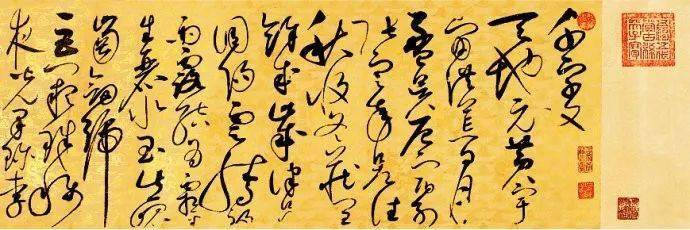 千字文
天地元黄宇
宙洪荒日月
盈昃辰宿列
張寒来暑往
秋收冬藏閏
餘成歲律呂
調陽雲騰致
雨露結為霜
生麗水玉出崐
崗劍號
巨闕珠稱
夜光果珍李